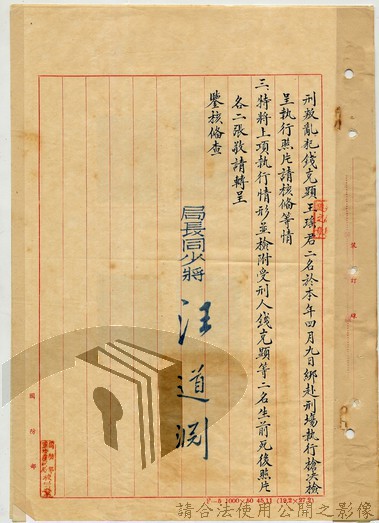 刑叛亂犯錢克顯王璋君二名於本年四月九日綁赴刑場執行槍決檢
呈執行照片請核備等情
三、特將上項執行情形並檢附受刑人錢克顯等二名生前死後照片
各二張敬請轉呈
鑒核備查
局長同少將
汪道淵
國防部
裝訂線
請合法使用公開之影像